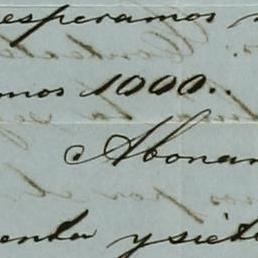 esperamos
mos 1000..
Abonam
enta y siete